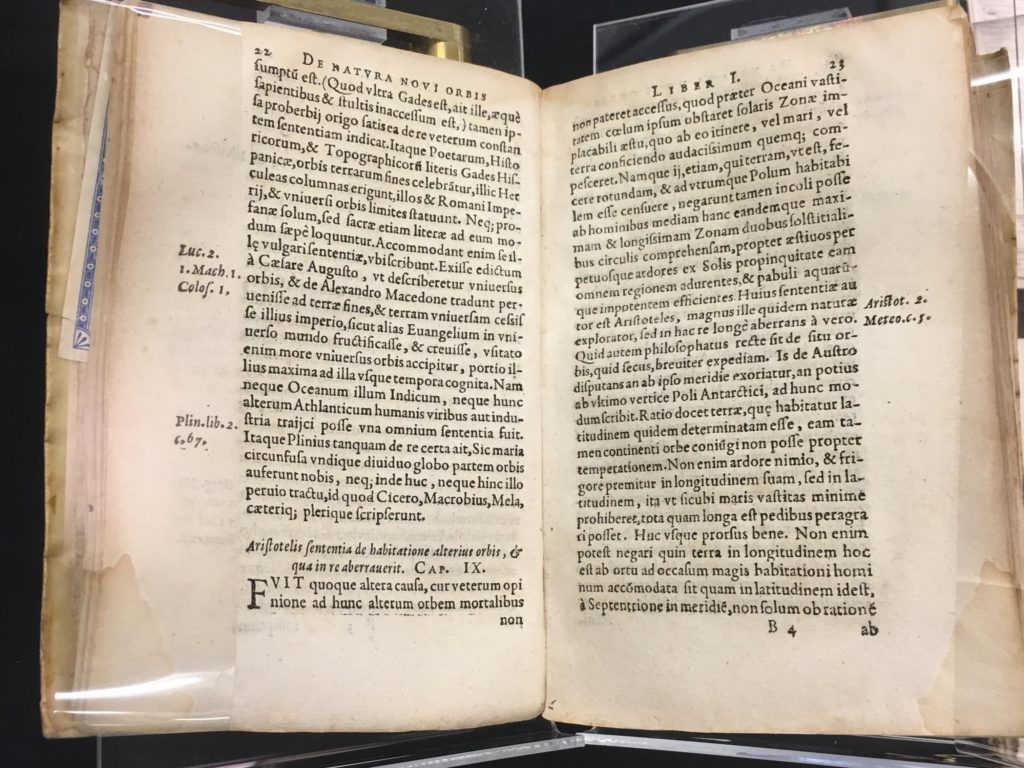 22
DE NATVRA NOVI ORBIS
sumptũ est. (Quod vltra Gades est, ait ille, æquè
sapientibus & stultis inaccessum est,) tamen ip-
sa proberbij origo satis ea de re veterum constan
tem sententiam indicat. Itaque Poetarum, Histo
ricorum, & Topographicorũ literis Gades His-
panicæ, orbis terrarum fines celebrãtur, illic Her
culeas columnas erigunt, illos & Romani Impe-
rij, & vniuersi orbis limites statuunt. Neq; pro-
fanæ solum, sed sacræ etiam literæ ad eum mo-
dum sæpè loquuntur. Accommodant enim se il-
lę vulgari sententiæ, vbi scribunt. Exisse edictum
à Cæsare Augusto, vt describeretur vniuersus
orbis, & de Alexandro Macedone tradunt per-
uenisse ad terræ fines, & terram vniuersam cessis
se illius imperio, sicut alias Euangelium in vni-
uerso mundo fructificasse, & creuisse, vsitato
enim more vniuersus orbis accipitur, portio il-
lius maxima ad illa vsque tempora cognita. Nam
neque Oceanum illum Indicum, neque hunc
alterum Athlanticum humanis viribus aut indu-
stria traijci posse vna omnium sententia fuit.
Itaque Plinius tanquam de re certa ait, Sic maria
circunfusa vndique diuiduo globo partem orbis
auferunt nobis, neq; inde huc, neque hinc illo
peruio tractu, id quod Cicero, Macrobius, Mela,
cæteriq; plerique scripserunt.
Luc. 2.
1. Mach. 1.
Colos. 1.
Plin. lib. 2.
c. 67.
Aristotelis sententia de habitatione alterius orbis, &
qua in re aberrauerit. CAP. IX.
FVIT quoque altera causa, cur veterum opi
nione ad hunc alterum orbem mortalibus
non
LIBER I.
23
non pateret accessus, quod præter Oceani vasti-
tatem cœlum ipsum obstaret solaris Zonæ im-
placabili æstu, quo ab eo itinere, vel mari, vel
terra conficiendo audacissimum quemq; com-
pesceret. Namque ij, etiam, qui terram, vt est, fe-
cere rotundam, & ad vtrumque Polum habitabi
lem esse censuere, negarunt tamen incoli posse
ab hominibus mediam hanc eandemque maxi-
mam & longissimam Zonam duobus solstitiali-
bus circulis comprehensam, propter æstiuos per
petuosque ardores ex Solis propinquitate eam
omnem regionem adurentes, & pabuli aquarũ-
que impotentem efficientes. Huius sententiæ au
tor est Aristoteles, magnus ille quidem naturæ
explorator, sed in hac re longè aberrans à vero.
Quid autem philosophatus recte sit de situ or-
bis, quid secus, breuiter expediam. Is de Austro
disputans an ab ipso meridie exoriatur, an potius
ab vltimo vertice Poli Antarctici, ad hunc mo-
dum scribit. Ratio docet terræ, quę habitatur la-
titudinem quidem determinatam esse, eam ta-
men continenti orbe coniũgi non posse propter
temperationem. Non enim ardore nimio, & fri-
gore premitur in longitudinem suam, sed in la-
titudinem, ita vt sicubi maris vastitas minimè
prohiberet, tota quam longa est pedibus peragra
ri posset. Huc vsque prorsus bene. Non enim
potest negari quin terra in longitudinem hoc
est ab ortu ad occasum magis habitationi homi
num accõmodata sit quam in latitudinem id est,
à Septentrione in meridiẽ, non solum ob rationẽ
Aristot. 2.
Meteo. c. 5.
B 4
ab